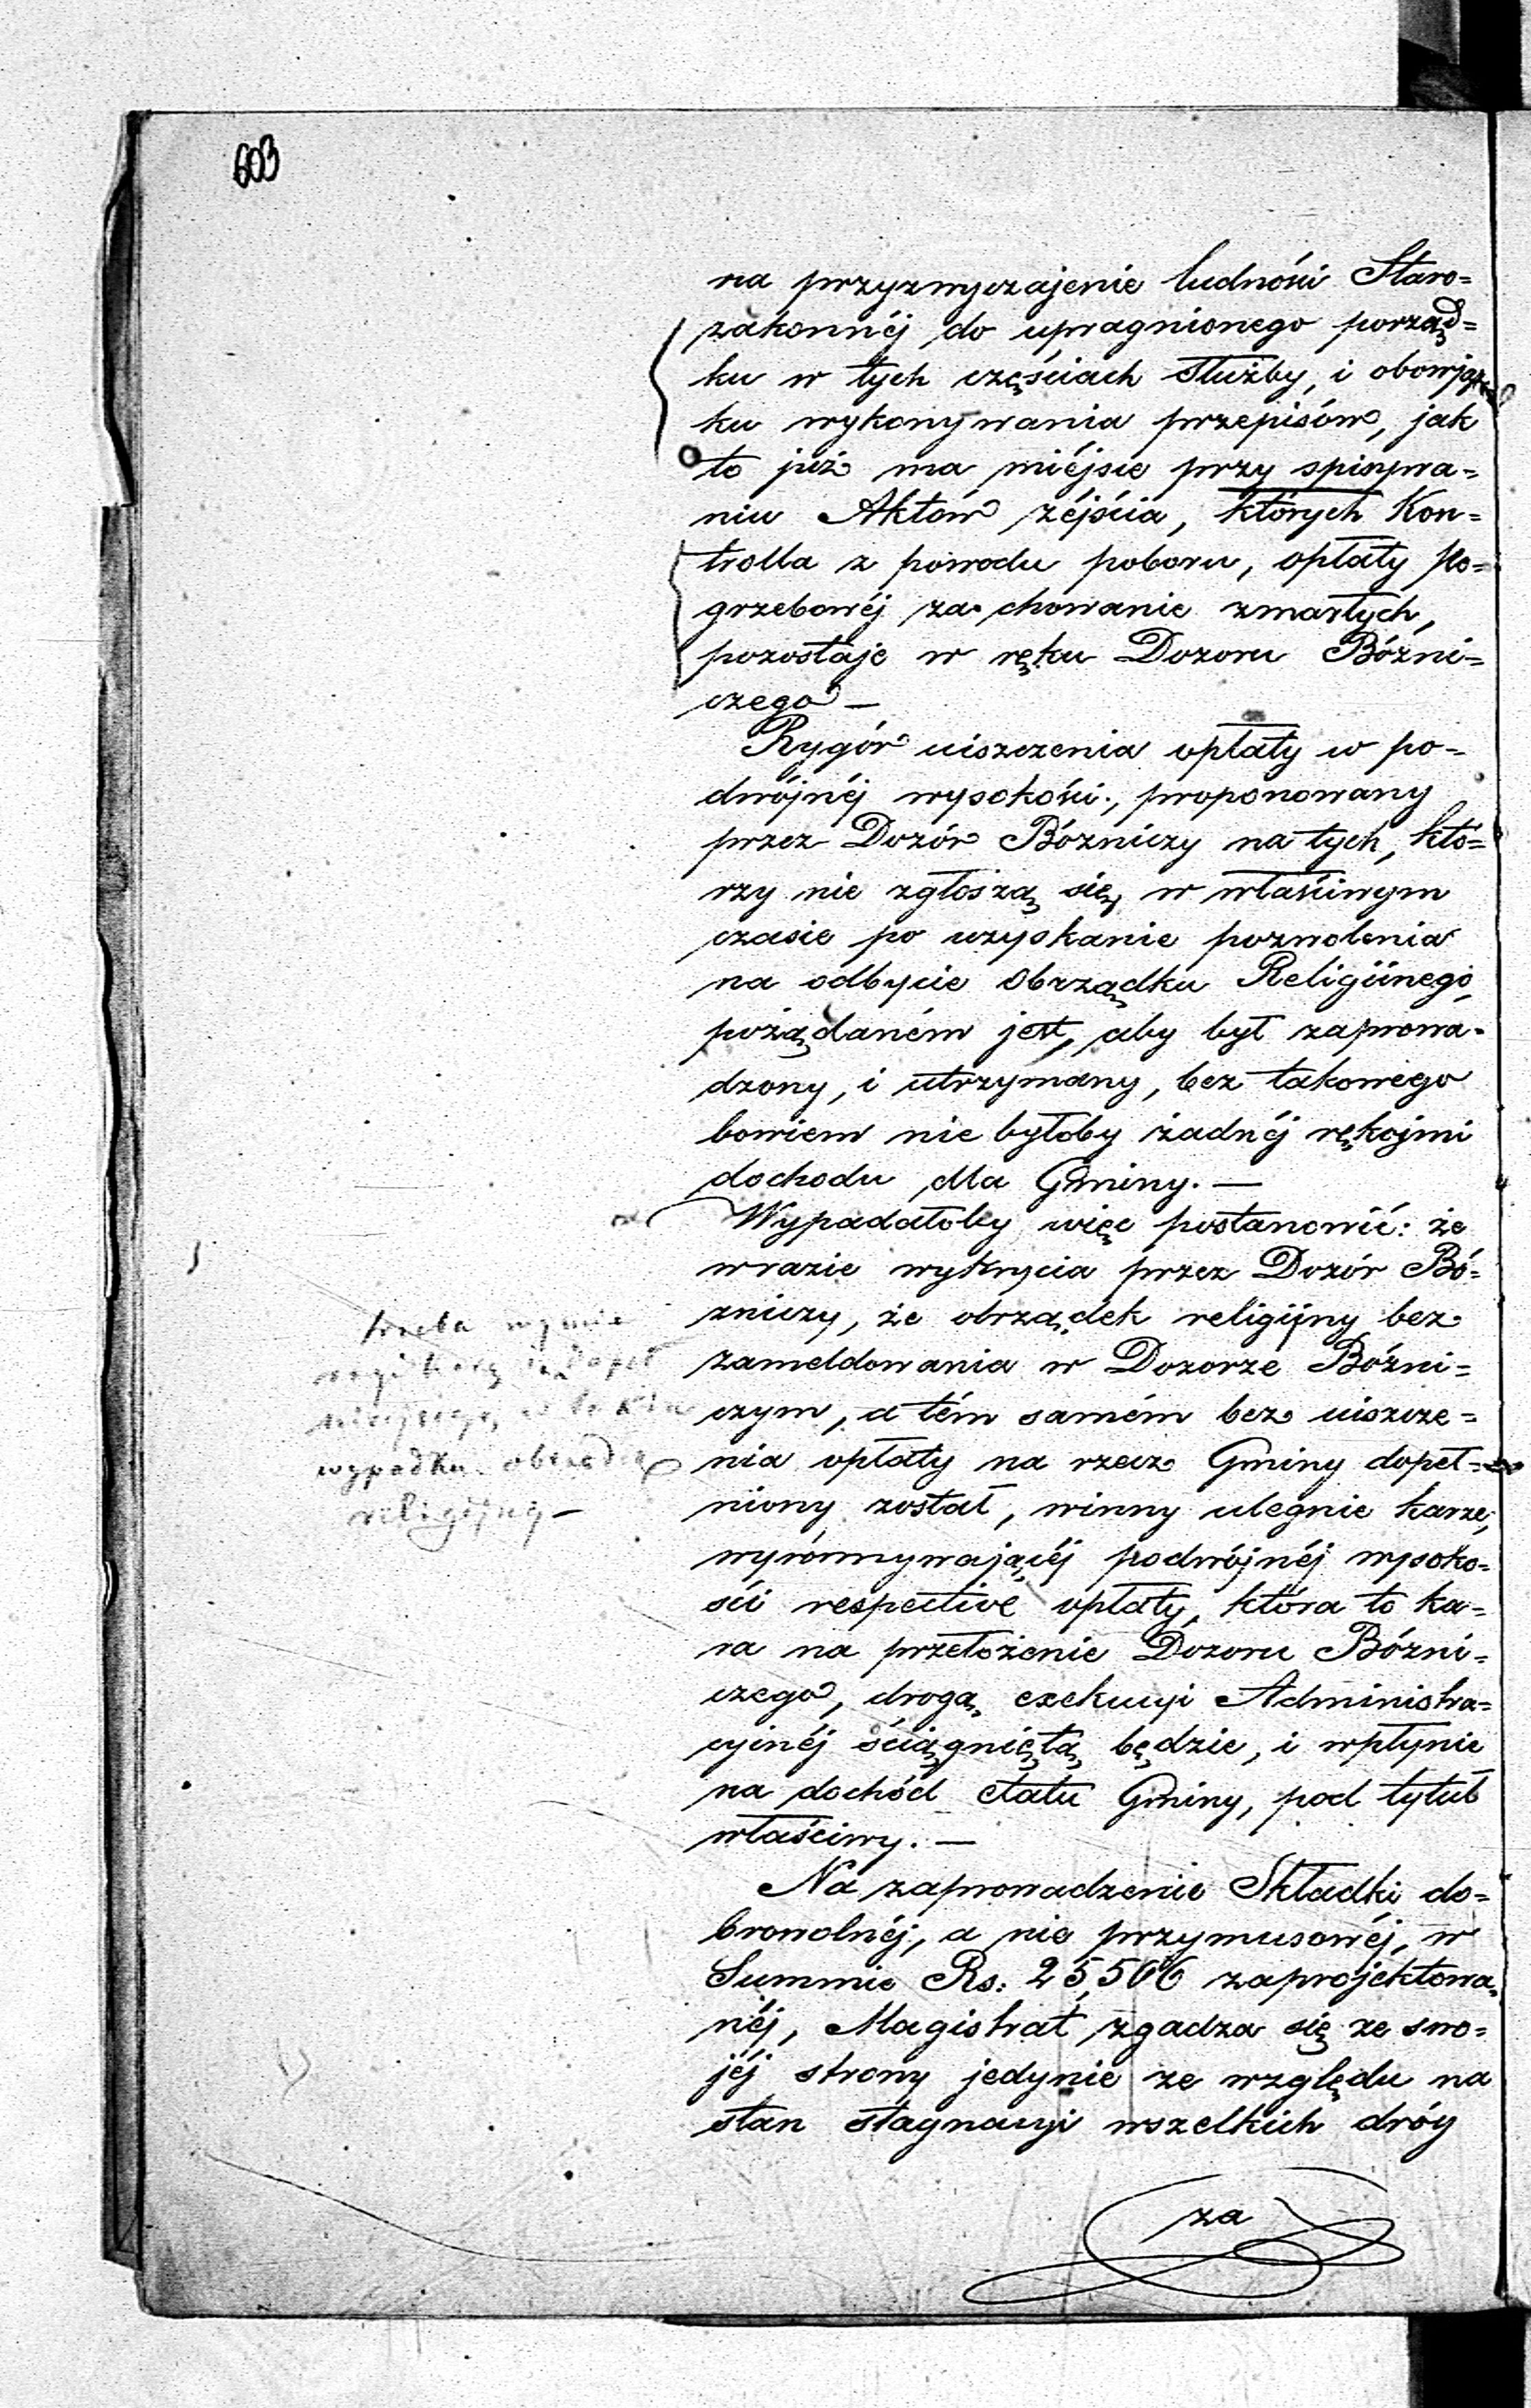 603
na przyzwyczajenie ludności Staro=
zakonnéj do upragnionego porząd=
ku w tych częściach Służby, i obowiąz
ku wykonywania przepisów, jak
to już ma miéjsce przy spisywa=
niu Aktów zéjścia, których Kon=
trolla z powodu poboru, opłaty po=
grzebowéj za chowanie zmarłych,
pozostaje w ręku Dozoru Bóżni=
czego —
Rygór uiszczenia opłaty w po=
dwójnéj wysokości, proponowany
przez Dozór Bóżniczy na tych, któ=
rzy nie zgłoszą się, w właściwym
czasie po uzyskanie pozwolenia
na odbycie Obrządku Religijnego,
pożądaném jest, aby był zaprowa=
dzony, i utrzymany, bez takowego
bowiem nie byłoby żadnéj rękojmi
dochodu dla Gminy. —
Wypadałoby więc postanowić: że
w razie wykrycia przez Dozór Bó=
żniczy, że obrządek religijny bez
zameldowania w Dozorze Bóżni=
czym, a tém samém bez uiszcze=
nia opłaty na rzecz Gminy dopeł=
niony został, winny ulegnie karze,
wyrównywającéj podwójnéj wysoko=
ści respective opłaty, która to ka=
ra na przełożenie Dozoru Bóżni=
czego, drogą exekucyi Administra=
cyjnéj ściągniętą będzie, i wpłynie
na dochód etatu Gminy, pod tytuł
właściwy. —
Na zaprowadzenie Składki do=
browolnéj, a nie przymusowéj, w
Summie Rs: 25,506 zaprojektowa=
néj, Magistrat zgadza się ze swo=
jéj strony jedynie ze względu na
stan stagnacyi wszelkich dróg
za
trzeba
wypadku obrządek
religijny —